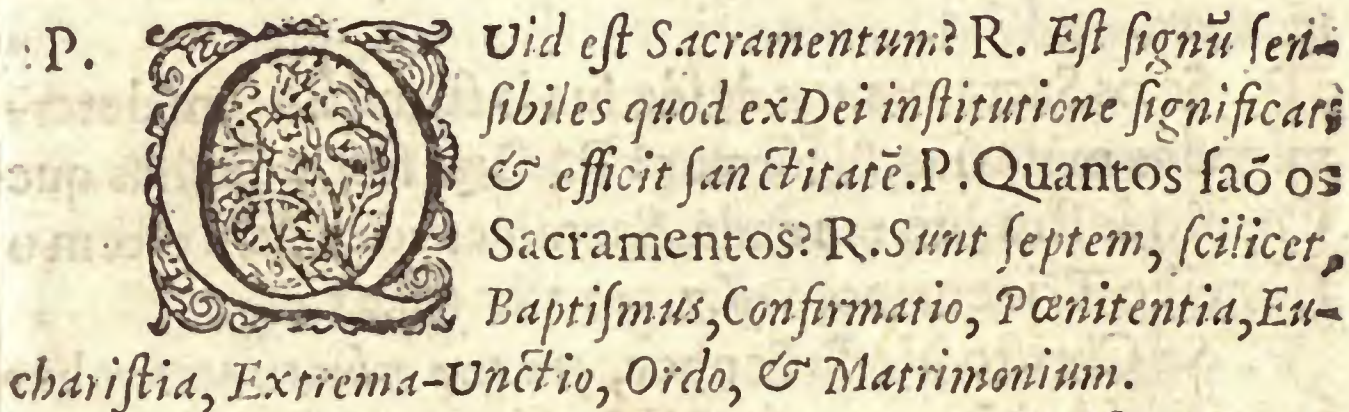 P. QUid eſt Sacramentum? R. Eſt ſignũ ſen-
ſibiles quod ex Dei inſtitutione ſignificat,
& efficit ſanctitatẽ. P. Quantos ſaõ os
Sacramentos? R. Sunt ſeptem, ſcilicet,
Baptiſmus, Confirmatio, Pœnitentia, Eu-
chariſtia, Extrema-Unctio, Ordo, & Matrimonium.